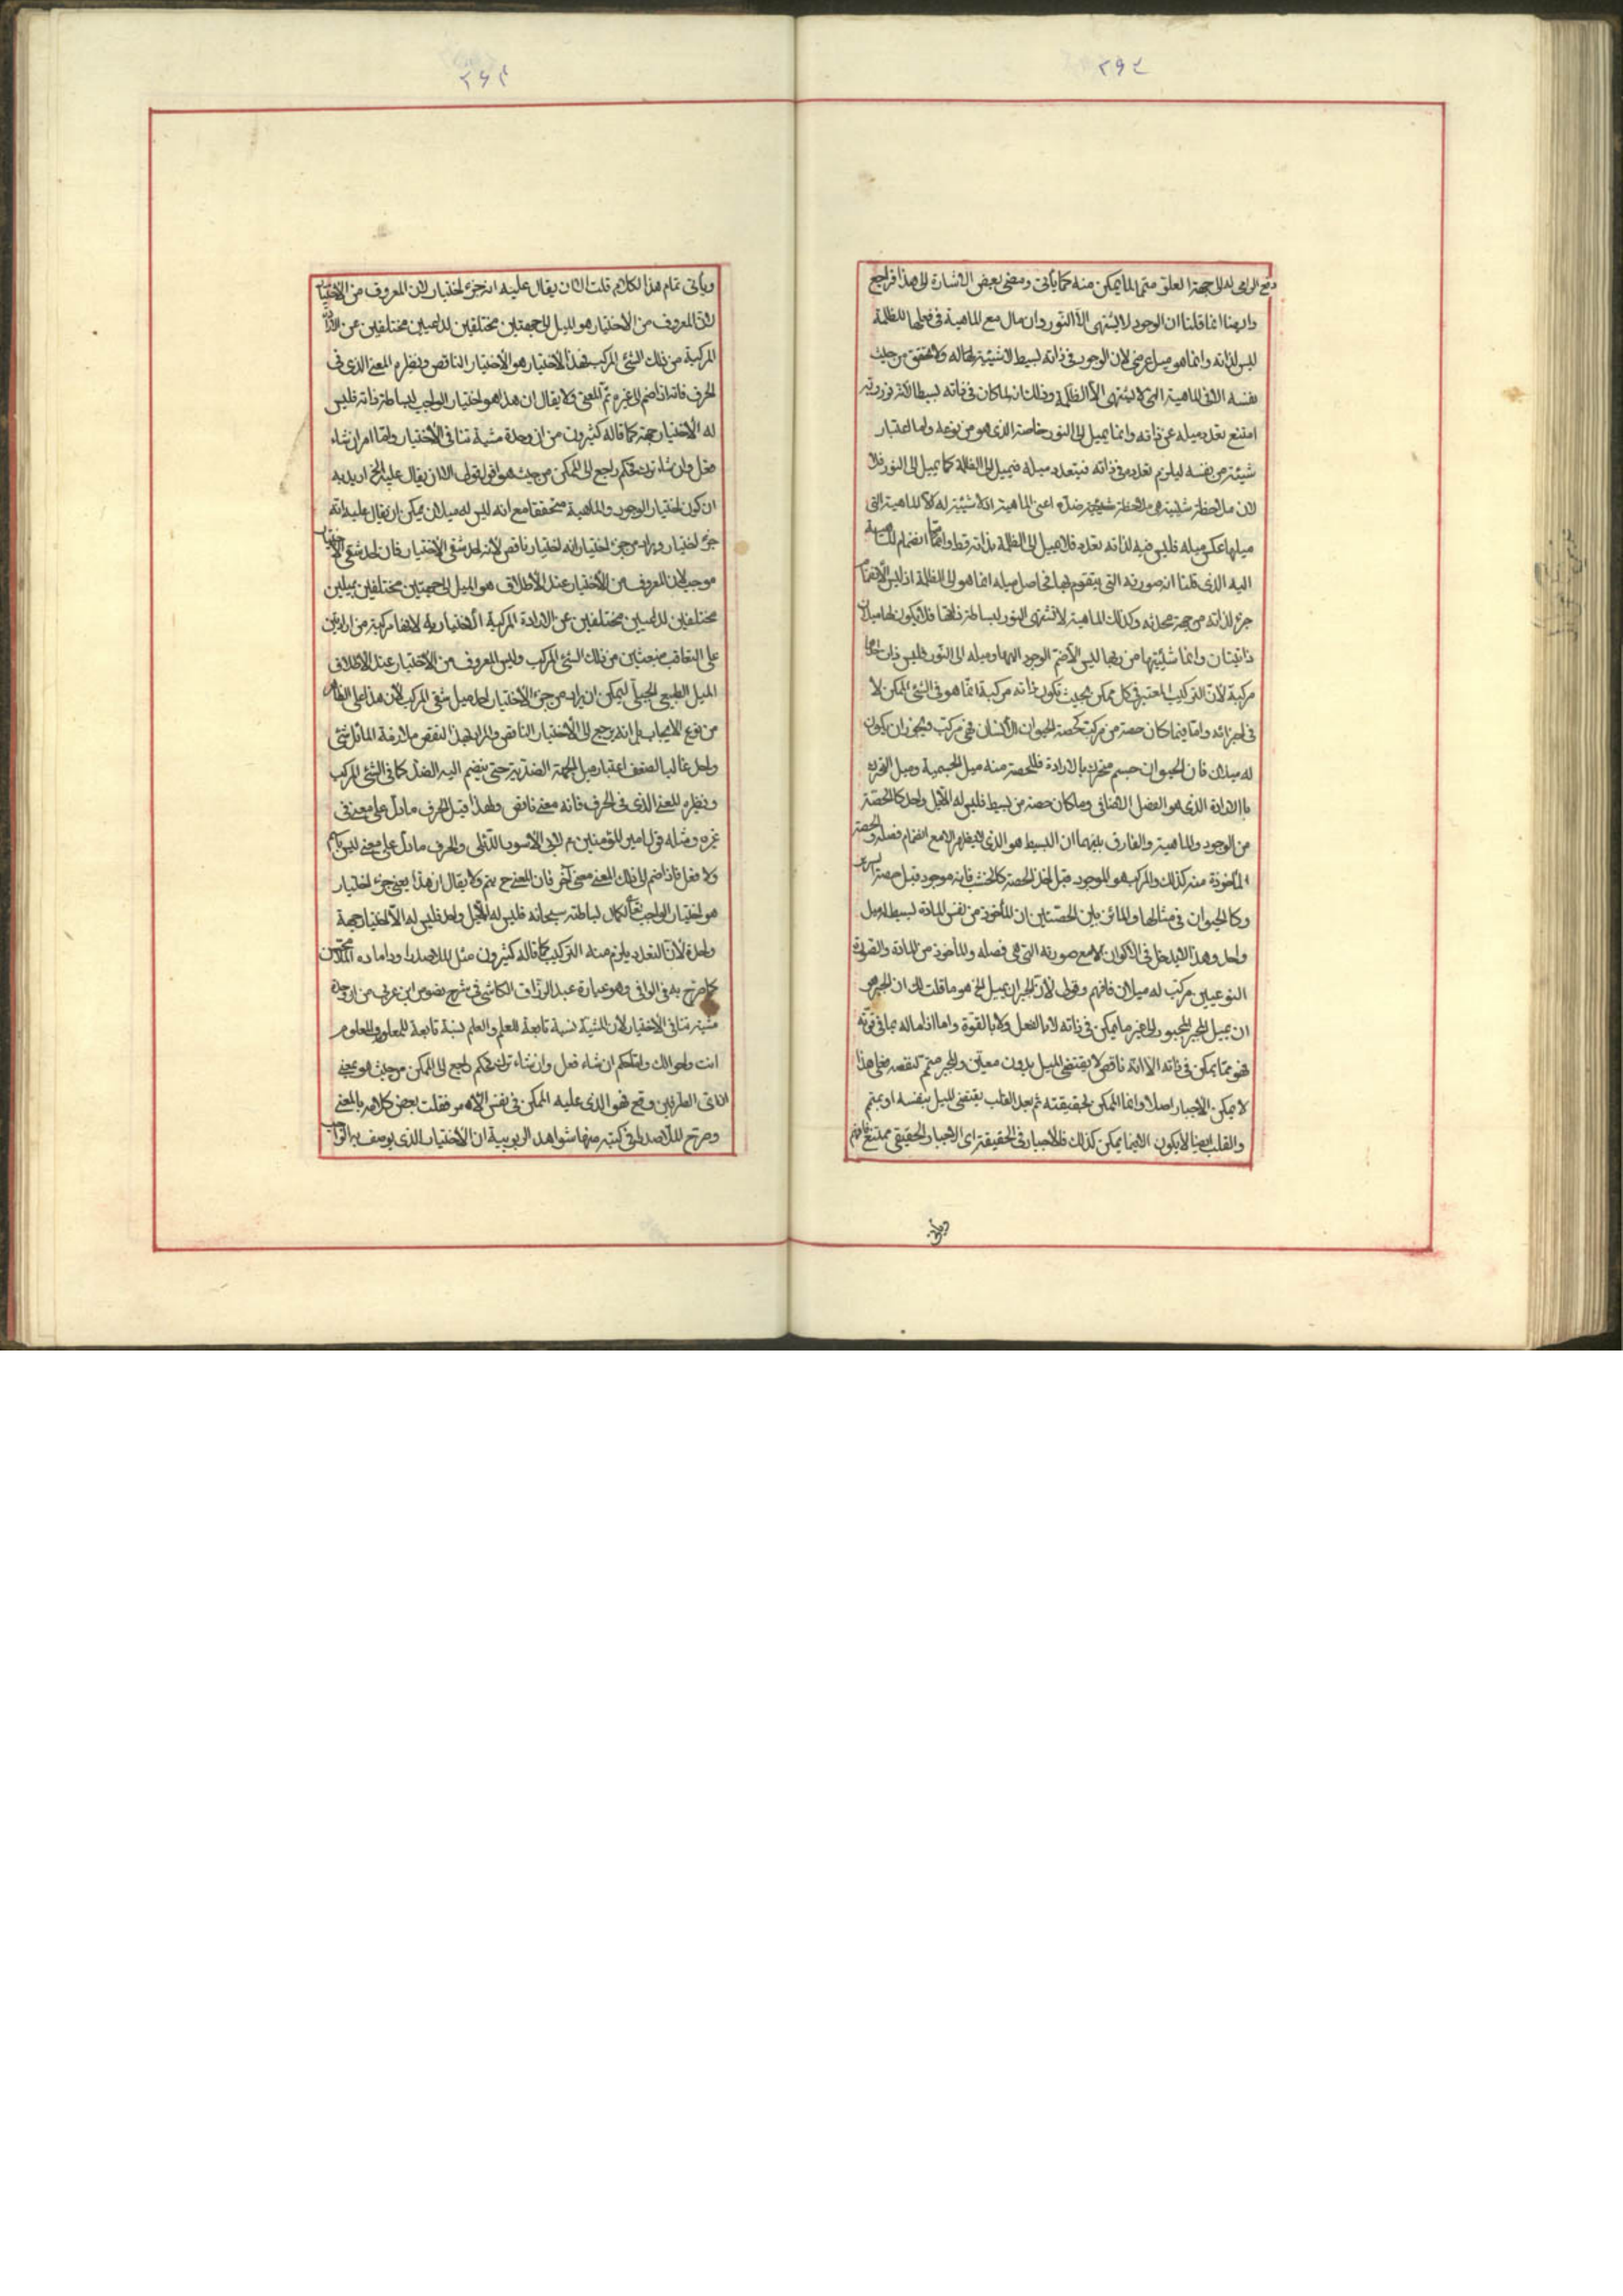 ٢٩٤
دفع الراعي له الى جهة العلو متمما لما يمكن منه كما يأتي ومضى بعض الاشارة الى هذا فراجع
وانما قلنا ان الوجود لا يشتهي الا النور وان مال مع الماهية في فعلها للظلمة
ليس لذاته وانما هو ميل عرضي لان الوجود في ذاته بسيط لا شيئية لحاله ولا تحقق من حيث
نفسه الا في الماهية التي لا تشتهي الا الظلمة وذلك انه لما كان في ذاته بسيطا
امتنع تعدد ميله عن ذاته وانما يميل الى النور خاصة الذي هو من نوعه واما اعتبار
شيئية من نفسه ليلزم تعدده في ذاته فيتعدد ميله فيميل الى الظلمة كما يميل الى النور فلا
لان ملاحظة شيئية هي ملاحظة شيئية ضده اعني الماهية اذ لا شيئية له الا الماهية التي
ميلها عكس ميله فليس فيه لذاته تعدد فلا يميل الى الظلمة بذاته قط وانما انضمام الماهية
اليه الذي قلنا انه صورته التي يتقوم بها فحاصل ميله انما هو الى الظلمة اذ ليس الانضمام
جزء لذاته من جهة محدثه وكذلك الماهية لا تشتهي النور لبساطة ذاتها فلا يكون لها ميلان
ذاتيان وانما شيئيتها من ربها ليس الا ضم الوجود اليها وميله الى النور فليس ذات احدهما
مركبة لان التركيب المعتبر في كل ممكن بحيث تكون ذاته مركبة انما هو في الشيء الممكن لا
في اجزائه واما فيما كان حصة من مركب كحصة الحيوان للانسان فهي مركب فيجوز ان يكون
له ميلان فان الحيوان جسم متحرك بالارادة فللحصة منه ميل الجسمية وميل التحرك
بالارادة الذي هو الفصل الاضافي وما كان حصة من بسيط فليس له الا ميل واحد كالحصة
من الوجود والماهية والفارق بينهما ان البسيط هو الذي لا يظهر الا مع انضمام فصله والحصة
المأخوذة منه كذلك والمركب هو الموجود قبل اخذ الحصة كالخشب فانه موجود قبل حصة السرير
وكالحيوان في مثالها والمائز بين الحصتين ان المأخوذ من نفس المادة بسيط له ميل
واحد وهذا لا يدخل في الاكوان الا مع صورته التي هي فصله والمأخوذ من المادة والصورة
النوعيين مركب له ميلان فافهم وقولي لان الجبر ان يميل الخ هو ما قلت لك ان الجبر هو
ان يميل المجبر المجبور الى غير ما يمكن في ذاته لا بالفعل ولا بالقوة واما اذا ماله بما في قوته
فهو مما يمكن في ذاته الا انه ناقص لا يقتضي الميل بدون معين والمجبر متمم لنقصه فعلى هذا
لا يمكن الاجبار اصلا وانما الممكن لحقيقته ثم بعد القلب يقتضي الميل بنفسه او بمتمم
والقلب ايضا لا يكون الا فيما يمكن كذلك فالاجبار في الحقيقة اي الاجبار الحقيقي ممتنع فافهم
ويأتي
٢٩٥
ويأتي تمام هذا الكلام قلت الا ان يقال عليه انه جزء اختيار لان المعروف من الاختيار
لان المعروف من الاختيار هو الميل الى جهتين مختلفتين لداعيين مختلفين عن الارادة
المركبة من ذلك الشيء المركب فهذا الاختيار هو الاختيار الناقص ونظيره المعنى الذي في
الحرف فانه اذا ضم الى غيره تم المعنى ولا يقال ان هذا هو اختيار الواجب لبساطة ذاته فليس
له الا اختيار جهة كما قاله كثيرون من ان وحدة مشية تنافي الاختيار وانما امر ان شاء
فعل وان شاء ترك فحكم راجع الى الممكن من حيث هو اقول قولي الا ان يقال عليه الخ اريد به
ان كون اختيار الوجود والماهية متحققا مع انه ليس له ميلان يمكن ان يقال عليه انه
جزء اختيار ويراد من جزء اختيار انه اختيار ناقص لانه احد شقي الاختيار فان احد شقي الاختيار
موجب لان المعروف من الاختيار عند الاطلاق هو الميل الى جهتين مختلفتين بميلين
مختلفين لداعيين مختلفين عن الارادة المركبة الاختيارية لانها مركبة من ارادتين
على التعاقب منبعثين من ذلك الشيء المركب وليس المعروف من الاختيار عند الاطلاق
الميل الطبيعي الجبلي ليمكن ان يراد من جزء الاختيار احد ميل شقي المركب لان هذا على الظاهر
من نوع الايجاب بل انه يرجع الى الاختيار الناقص والمراد بهذا النقص ملازمة المائل شيء
واحد غالبا لضعف اعتبار ميل الجهة الضدية حتى ينضم اليه الضد كما في الشيء المركب
ونظيره المعنى الذي في الحرف فانه معنى ناقص ولهذا قيل الحرف ما دل على معنى في
غيره ومثله قول امير المؤمنين ع لابي الاسود الدئلي والحرف ما دل على معنى ليس باسم
ولا فعل فاذا ضم الى ذلك المعنى معنى آخر فان المعنى ح يتم ولا يقال ان هذا يعني جزء اختيار
هو اختيار الواجب تعالى لكمال بساطته سبحانه فليس له الا ميل واحد فليس له الا اختيار جهة
واحدة لان التعدد يلزم منه التركيب كما قاله كثيرون مثل الملا صدرا وداماده الملا محسن
كما صرح به في الوافي وهو عبارة عبد الرزاق الكاشي في شرح فصوص ابن عربي من ان وحدة
مشيته تنافي الاختيار لان المشية نسبة تابعة للعلم والعلم نسبة تابعة للمعلوم والمعلوم
انت واحوالك وانما حكم ان شاء فعل وان شاء ترك فحكم راجع الى الممكن من حيث هو يعني
ان اتى الطرفين وقع فهو الذي عليه الممكن في نفس الامر فنقلت بعض كلامه بالمعنى
وصرح الملا صدرا في كتبه منها شواهد الربوبية ان الاختيار الذي يوصف به الواجب